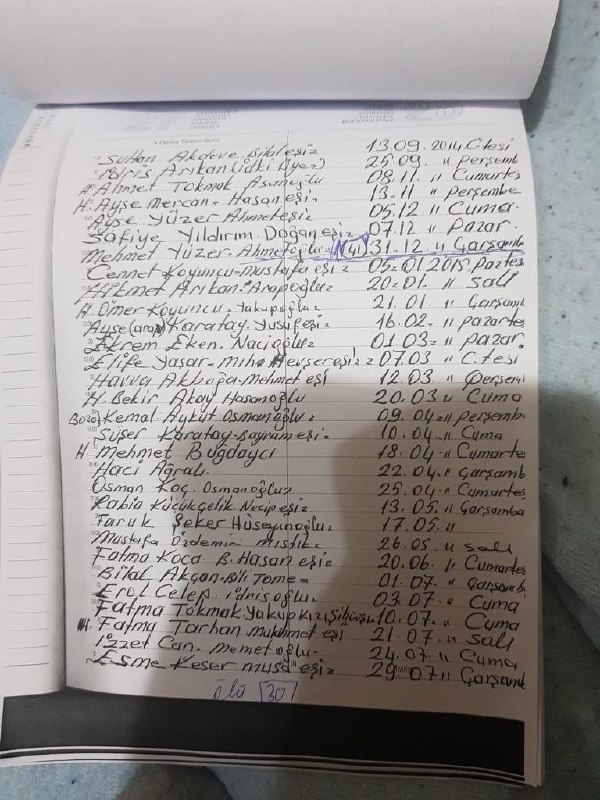 Sultan Akdeve Bilal eşi 13.09.2014 C.tesi
İdris Arıkan (idki Üyez) 25.09. " perşemb
A. Ahmet Tokmak Asımoğlu 08.11. " Cumartes
H. Ayşe Mercan. Hasan eşi. 13.11 " perşembe
Ayşe Yüzer Ahmet eşi. 05.12 " Cuma.
Safiye Yıldırım. Doğan eşi. 07.12 " Pazar.
Mehmet Yüzer. Ahmetoğlu. (41) 31.12. " Çarşamba
Cennet Koyuncu-mustafa eşi 05.01.2015 paztes
Hikmet Arıkan. Arapoğlu. 20.01. " salı
H. Ömer Koyuncu. Yakupoğlu. 21.01. " Çarşamb
Ayşe (arap) Karatay. Yusuf eşi. 16.02. " pazartes
Ekrem Eken. Nacioğlu. 01.03 " pazar.
Elife Yaşar. eşi 07.03 " C.tesi
Havva Akboğa-Mehmet eşi 12.03 " perşemb
H. Bekir Akay Hasanoğlu 20.03 " Cuma
Bozo Kemal Aykut Osmanoğlu. 09.04. " perşemb
Süşer Karatay-Bayram eşi. 10.04. " Cuma
H. Mehmet Buğdaycı 18.04 " Cumarte
Hacı Ağralı 22.04. " Çarşamb
Osman Koç. Osmanoğlu 25.04. " Cumartes
Rabia Küçükçelik. Necip eşi. 13.05. " Çarşamba
Faruk Şeker Hüseyinoğlu. 17.05. "
Mustafa Özdemir mıstık. 26.05. " salı
Fatma Koca. B. Hasan eşi. 20.06. " Cumartes
Bilal Akçan-Bili Tome= 01.07. " Çarşamb
Erol Çelep. idrisoğlu. 03.07 " Cuma
Fatma Tokmak Yakup kızı 10.07. " Cuma
H. Fatma Tarhan muhmet eşi 21.07. " salı
İzzet Can. memetoğlu. 24.07 " Cuma
Esme Keser musa eşi. 29.07 " Çarşamb
ölü 30